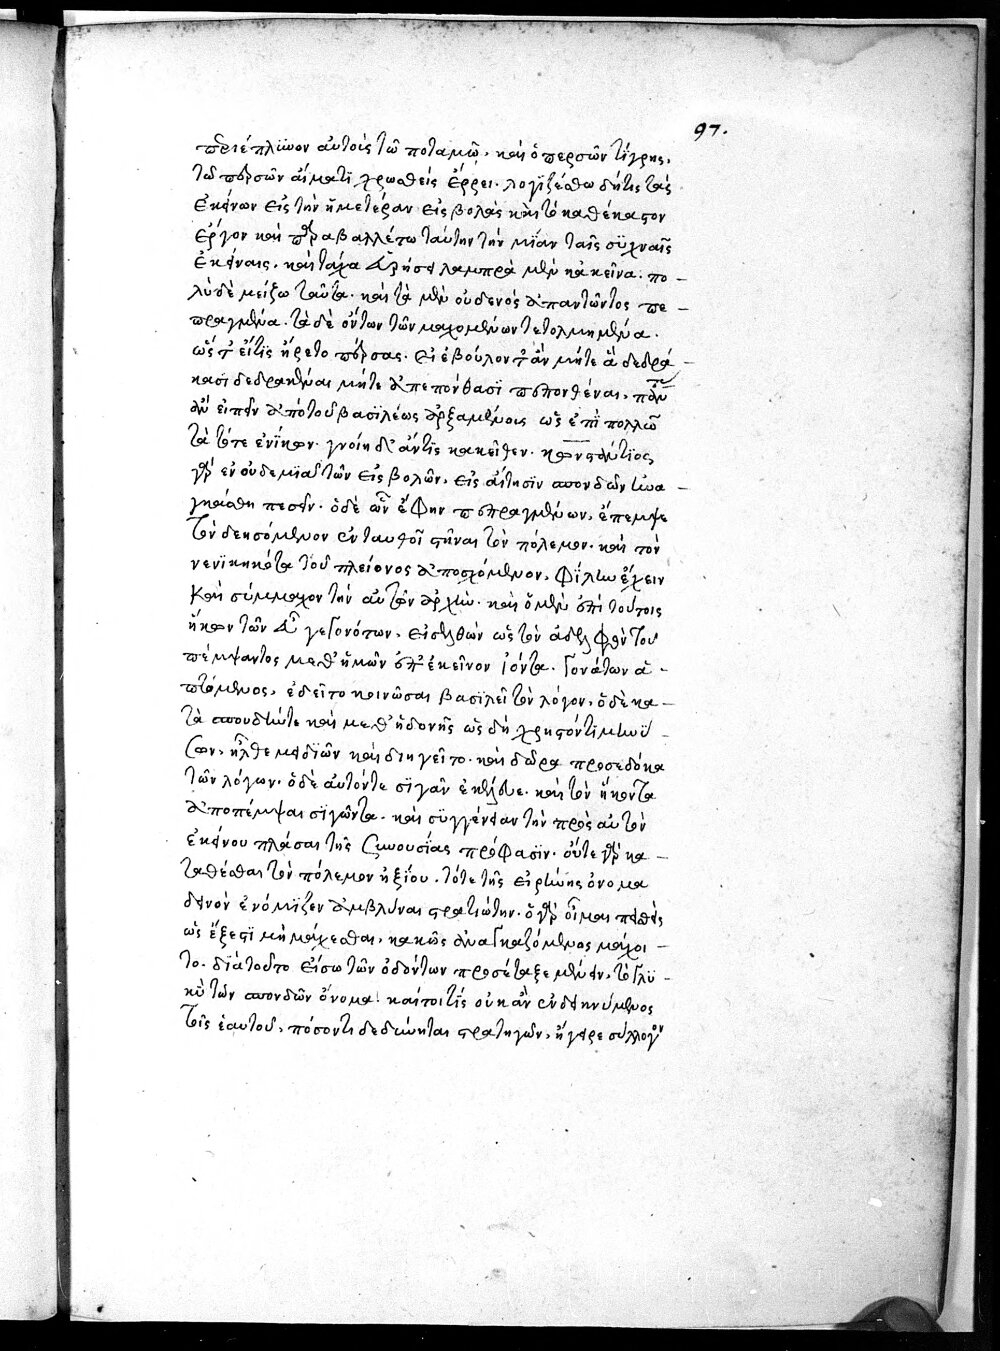 97.
περιέπλεον αὐτοῖς τῶ ποταμῶ. καὶ ὁ περσῶν τίγρης,
τῶ περσῶν αἵματι χρωσθεὶς ἔρρει. λογιζέσθω δή τις τὰς
ἐκείνων εἰς τὴν ἡμετέραν εἰσβολὰς καὶ τὸ καθέκαστον
ἔργον καὶ παραβαλλέτω ταύτην τὴν μίαν ταῖς συχναῖς
ἐκείναις. καὶ τάχα εὑρήσει λαμπρὰ μὲν κἀκεῖνα. πο-
λὺ δὲ μείζω ταῦτα. καὶ τὰ μὲν οὐδενὸς ἀπαντῶντος πε-
πραγμένα. τὰ δὲ ὄντων τῶν μαχομένων τετολμημένα.
ὡς εἴ τις ἤρετο πέρσας. εἰ ἐβούλοντο ἂν μήτε ἃ δεδρά-
κασι δεδρακέναι μήτε ἃ πεπόνθασι πεπονθέναι,
ἂν εἰπεῖν ἀπὸ τοῦ βασιλέως ἀρξαμένοις ὡς ἐπὶ πολλῶ
τὰ τότε ἐνίκων. γνοίη δ' ἄν τις κἀκεῖθεν. κωνστάντιος
γὰρ ἐν οὐδεμιᾶ τῶν εἰσβολῶν, εἰς αἴτησιν σπονδῶν ἠνα-
γκάσθη πεσεῖν. ὁ δὲ ὧν ἔφην πεπραγμένων, ἔπεμψε
τὸν δεησόμενον ἐνταυθοῖ στῆναι τὸν πόλεμον. καὶ τὸν
νενικηκότα τοῦ πλείονος ἀποσχόμενον, φίλην ἔχειν
καὶ σύμμαχον τὴν αὐτῶν ἀρχήν. καὶ ὁ μὲν ἐπὶ τούτοις
ἥκων τῶν εὖ γεγονότων, εἰσελθὼν ὡς τὸν ἀδελφὸν τοῦ
πέμψαντος μεθ' ἡμῶν ἐπ' ἐκεῖνον ἰόντα. γονάτων ἁ-
πτόμενος, ἐδεῖτο κοινῶσαι βασιλεῖ τὸν λόγον, ὁ δὲ κα-
τὰ σπουδήν τε καὶ μεθ' ἡδονῆς ὡς δὴ χρηστόν τι μηνύ-
σων, ἦλθε μειδιῶν καὶ διηγεῖτο. καὶ δῶρα προσεδόκα
τῶν λόγων. ὁ δὲ αὐτόν τε σιγᾶν ἐκέλευε. καὶ τὸν ἥκοντα
ἀποπέμψαι σιγῶντα. καὶ συγγένειαν τὴν πρὸς αὐτὸν
ἐκείνου πλάσαι τῆς συνουσίας πρόφασιν. οὔτε γὰρ κα-
ταθέσθαι τὸν πόλεμον ἠξίου. τό τε τῆς εἰρήνης ὄνομα
δεινὸν ἐνόμιζεν ἀμβλῦναι στρατιώτην. ὁ γὰρ οἶμαι πεισθεὶς
ὡς ἔξεστι μὴ μάχεσθαι, κακῶς ἀναγκαζόμενος μάχοι-
το. διὰ τοῦτο εἴσω τῶν ὀδόντων προσέταξε μένειν, τὸ γλυ-
κὺ τῶν σπονδῶν ὄνομα. καίτοι τίς οὐκ ἂν
τοῖς ἑαυτοῦ, πόσον τι δεδύνηται στρατηγῶν, ἤγειρε σύλλογον